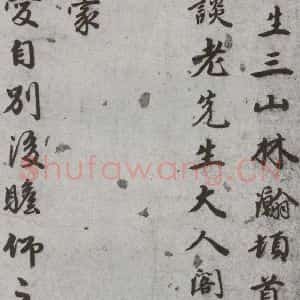 生三山林瀚頓首
談老先生大人閣
蒙
愛自別後瞻仰之
Shufawang.CN